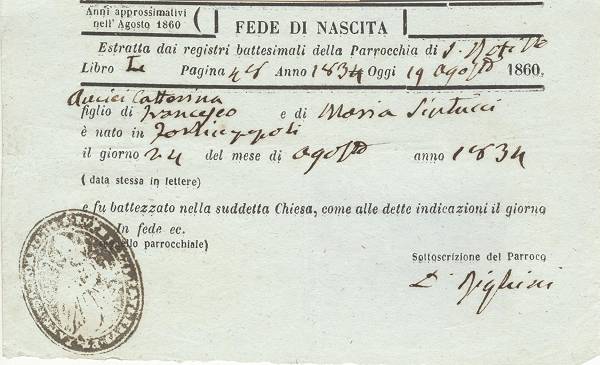 Anni approssimativi
nell'Agosto 1860
FEDE DI NASCITA
Estratta dai registri battesimali della Parrocchia di S.
Libro Pagina 48 Anno 1834 Oggi 19 agosto 1860.
Catterina
figlio di Francesco e di Maria
è nato in
il giorno 24 del mese di agosto anno 1834
( data stessa in lettere )
e fu battezzato nella suddetta Chiesa, come alle dette indicazioni il giorno
In fede ec.
parrocchiale)
Sottoscrizione del Parroco